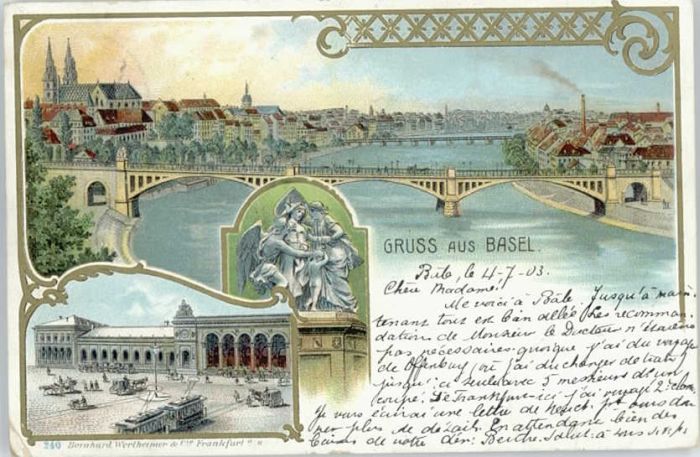 GRUSS AUS BASEL.
Bâle, le 4-7-03.
Chère Madame!
Me voici à Bâle. Jusqu'à main-
tenant tout est bien allé. Les recomman
dations de Monsieur le Docteur n'étaient
pas nécessaires quoique j'ai du voyage
de Offenburg (où j'ai du changer de train)
jusqu'à seule avec 5 messieurs de un
coupé. De Frankfurt-ici j'ai voyagé 2. clas
Je vars écrirai une lettre de pour
ner plus de détails. En attendant bien des
de votre dév. Salut à tous
240 Bernhard Wertheimer & Cie Frankfurt a/M